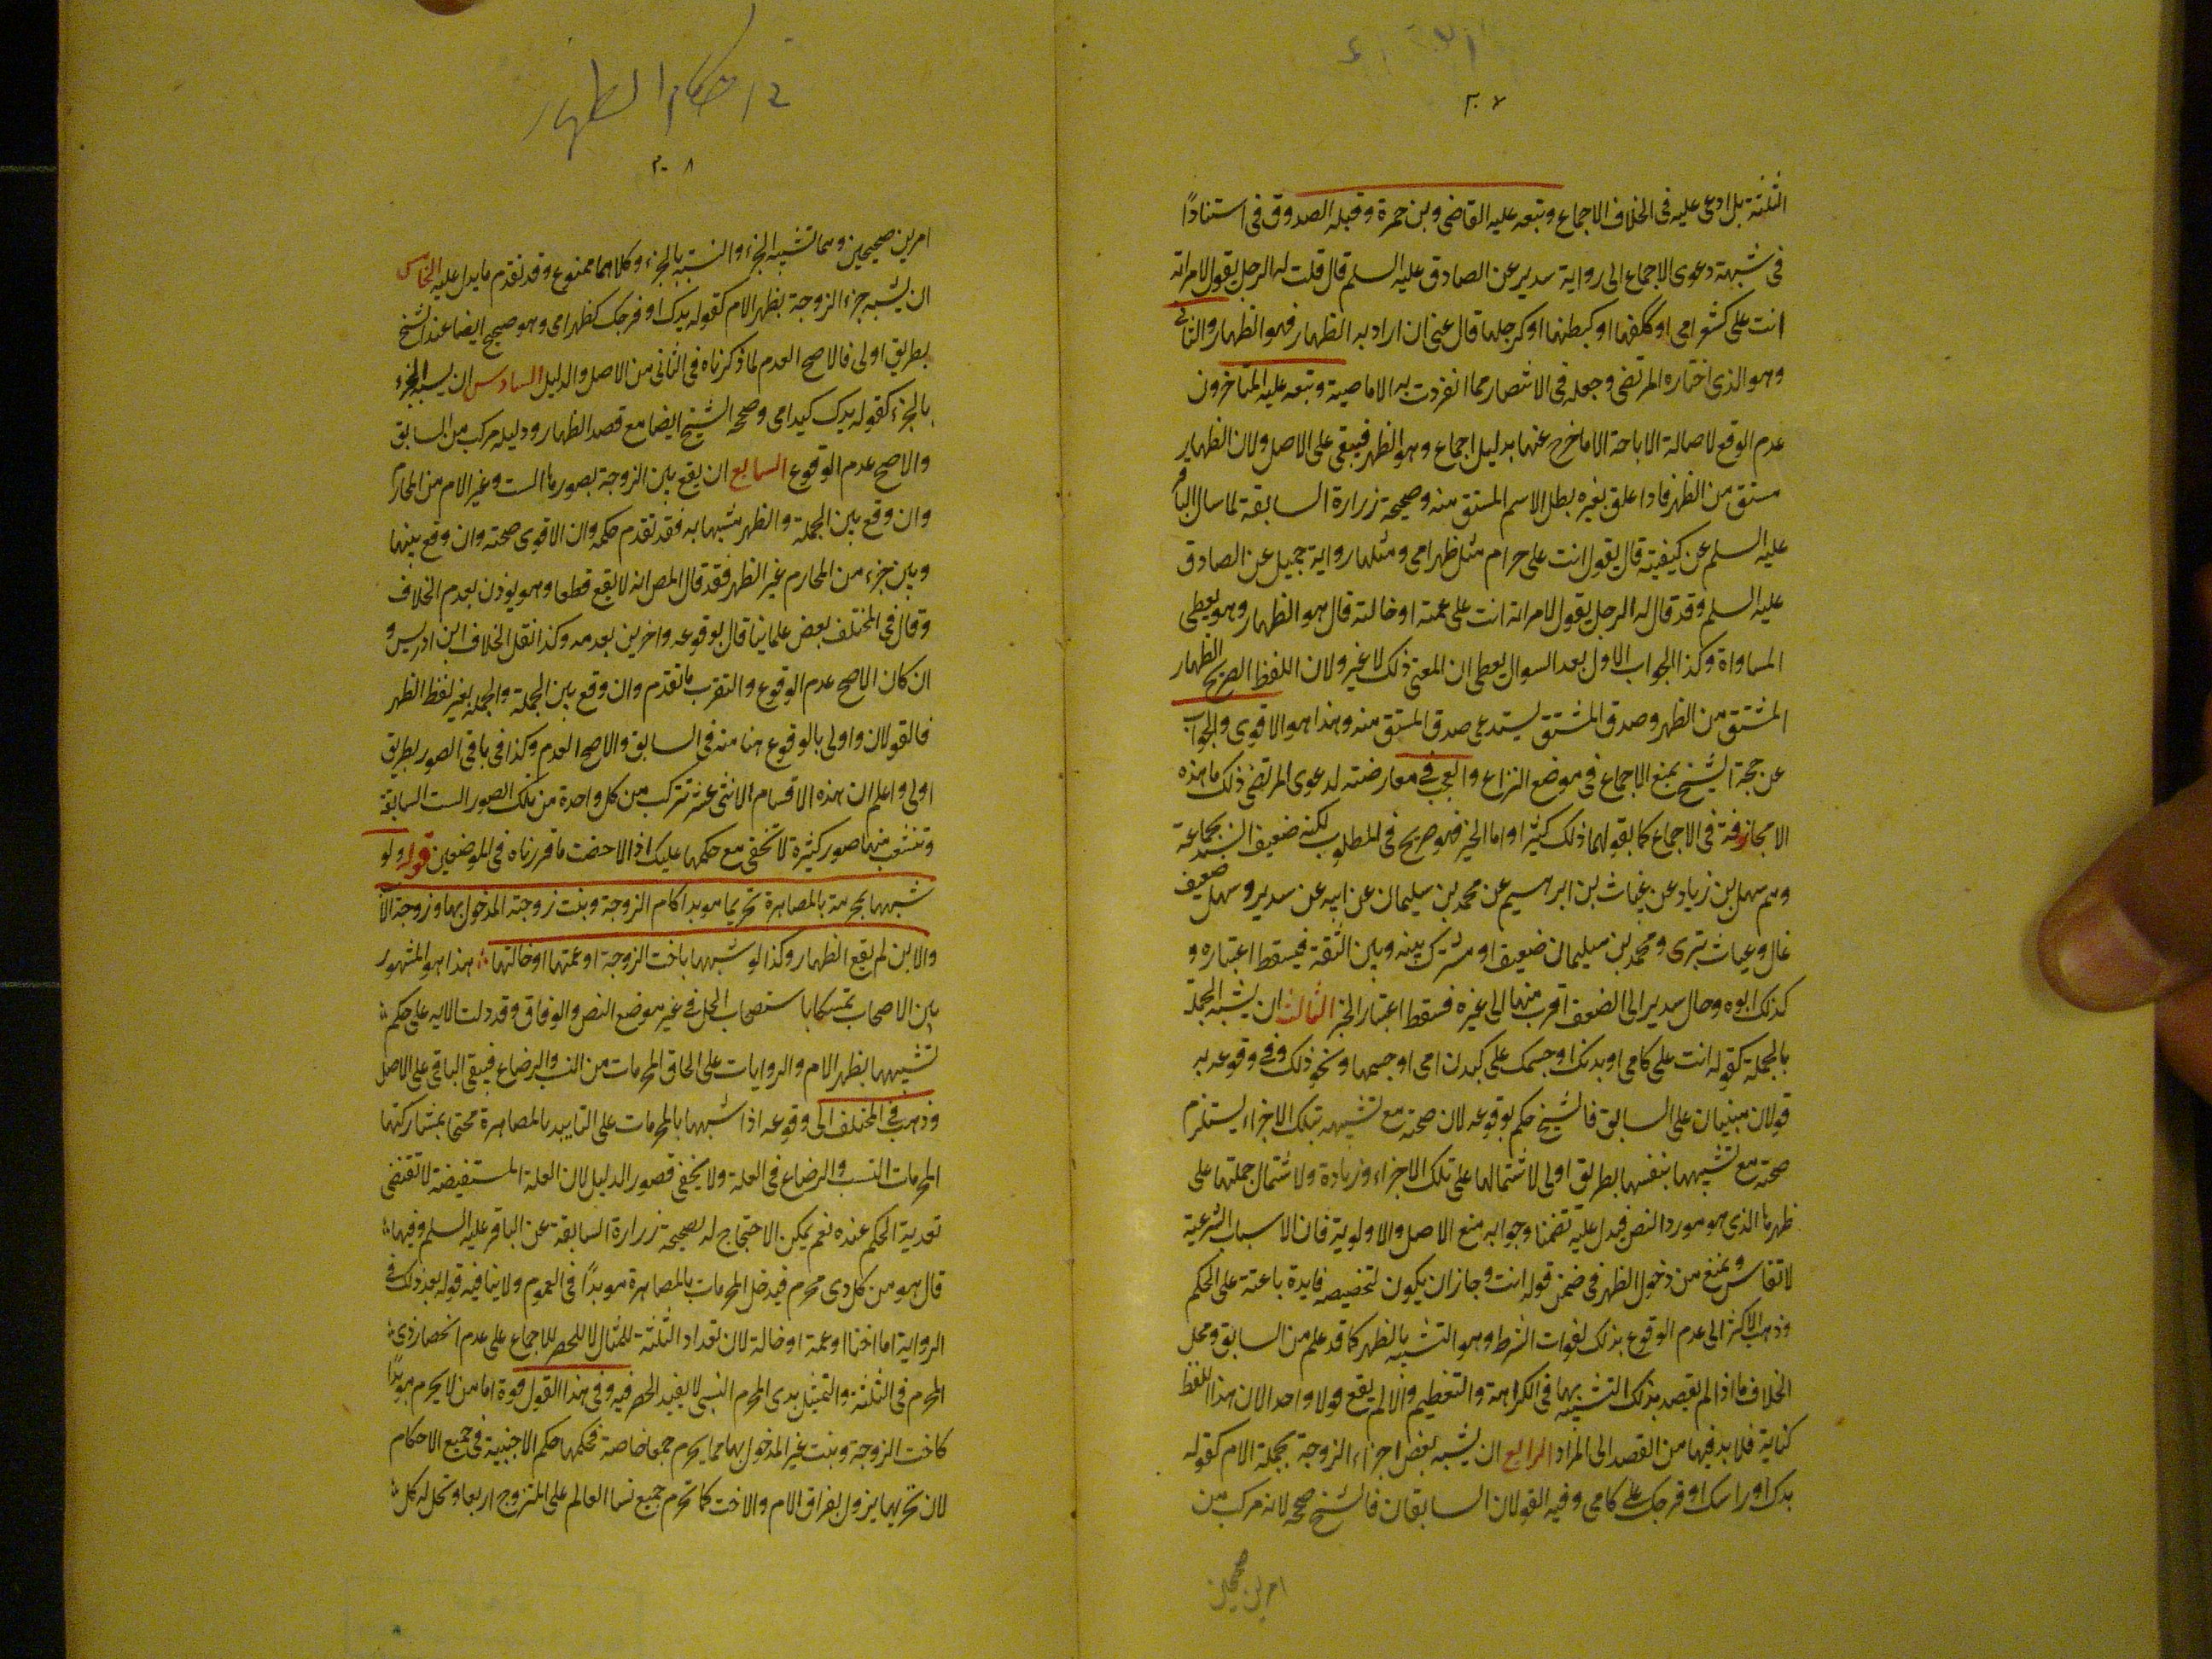 ٢٠٧
الثلثة بل ادعى عليه فى الخلاف الاجماع وتبعه عليه القاضى وبن حمزة وقبله الصدوق فى استنادًا
فى شبهة دعوى الاجماع الى رواية سدير عن الصادق عليه السلم قال قلت له الرجل يقول لامراته
انت على كشعر امى او ككفها او كبطنها او كرجلها قال عنى ان اراد به الظهار فهو الظهار والثانى
وهو الذى اختاره المرتضى وجعله فى الانتصار مما انفردت به الامامية وتبعه عليه المتاخرون
عدم الوقوع لاصالة الاباحة الا ما خرج عنها بدليل اجماع وهو الظهر فيبقى على الاصل ولان الظهار
مستق من الظهر فاذا علق بغيره بطل الاسم المستق منه وصحيحة زرارة السابقة لما سال الباقر
عليه السلم عن كيفيته قال يقول انت على حرام مثل ظهر امى ومثلها رواية جميل عن الصادق
عليه السلم وقد قال له الرجل يقول لامراته انت على عمته او خالته قال هو الظهار وهو يعطى
المساواة وكذا الجواب الاول بعد السوال يعطى ان المعنى ذلك لا غير ولان اللفظ الصريح الظهار
المشتق من الظهر وصدق المشتق يستدعى صدق المستق منه وهذا هو الاقوى والجواب
عن حجة الشيخ بمنع الاجماع فى موضع النزاع والعجب فى معارضته لدعوى المرتضى ذلك ما هذه
الا مجازفة فى الاجماع كما بقولهما ذلك كثيرا واما الخبر فهو صريح فى المطلوب لكنه ضعيف السند بجماعة
وهم سهل بن زياد عن غياث بن ابرهيم عن محمد بن سليمان عن ابيه عن سدير وسهل ضعيف
غال وغياث بترى ومحمد بن سليمان ضعيف او مشترك بينه وبين الثقة فيسقط اعتباره و
كذلك ابوه وحال سدير الى الضعف اقرب منها الى غيره فسقط اعتبار الخبر الثالث ان يشبه الجملة
بالجملة كقوله انت على كامى او بدنك او جسمك على كبدن امى او جسمها ونحو ذلك وفى وقوعه به
قولان مبنيان على السابق فالشيخ حكم بوقوعه لان صحته مع تشبيهه بتلك الاجزاء يستلزم
صحته مع تشبيهها بنفسها بطريق اولى لاشتمالها على تلك الاجزاء وزيادة ولاشتمال جملتها على
ظهرها الذى هو مورد النص فيدل عليه تضمنا وجوابه منع الاصل والاولوية فان الاسباب الشرعية
لا تقاس ونمنع من دخول الظهر فى ضمن قوله انت وجاز ان يكون لتخصيصه فايدة باعثة على الحكم
وذهب الاكثر الى عدم الوقوع بذلك لفوات الشرط وهو التشبيه بالظهر كما قد علم من السابق ومحل
الخلاف ما اذا لم يقصد بذلك التشبيه بها فى الكراهة والتعظيم والا لم يقع قولا واحد الان هذا اللفظ
كناية فلا بد فيها من القصد الى المراد الرابع ان يشبه بعض اجزاء الزوجة بجملة الام كقوله
يدك او راسك او فرجك على كامى وفيه القولان السابقان فالشيخ صححه لانه مركب من
امرين صحيحين
فى احكام الظهار
٢٠٨
امرين صحيحين وهما تشبيه الجزء والتشبيه بالجزء وكلاهما ممنوع وقد تقدم ما يدل عليه الخامس
ان يشبه جزء الزوجة بظهر الام كقوله يدك او فرجك كظهر امى وهو صحيح ايضا عند الشيخ
بطريق اولى فالاصح العدم لما ذكرناه فى الثانى من الاصل والدليل السادس ان يشبه الجزء
بالجزء كقوله يدك كيد امى وصححه الشيخ ايضا مع قصد الظهار ودليله مركب من السابق
والاصح عدم الوقوع السابع ان يقع بين الزوجة بصورها الست وغير الام من المحارم
وان وقع بين الجملة والظهر مشبها به فقد تقدم حكمه وان الاقوى صحته وان وقع بينهما
وبين جزء من المحارم غير الظهر فقد قال المص انه لا يقع قطعا وهو يوذن بعدم الخلاف
وقال فى المختلف بعض علماينا قال بوقوعه واخرين بعدمه وكذا نقل الخلاف ابن ادريس و
ان كان الاصح عدم الوقوع والتقرب ما تقدم وان وقع بين الجملة والجملة بغير لفظ الظهر
فالقولان واولى بالوقوع هنا منه فى السابق والاصح العدم وكذا فى باقى الصور بطريق
اولى واعلم ان هذه الاقسام الاثنى عشر تتركب من كل واحدة من تلك الصور الست السابقة
وتتشعب منها صور كثيرة لا تخفى مع حكمها عليك اذا لاحضت ما قررناه فى الموضعين قوله ولو
شبهها بمحرمة بالمصاهرة تحريما موبدا كام الزوجة وبنت زوجته المدخول بها وزوجة الاب
والابن لم يقع الظهار وكذا لو شبهها باخت الزوجة او عمتها او خالتها هذا هو المشهور
بين الاصحاب تمسكا باستصحاب الحل فى غير موضع النص والوفاق وقد دلت الايه على حكم
تشبيهها بظهر الام والروايات على الحاق المحرمات من النسب والرضاع فيبقى الباقى على الاصل
وذهب فى المختلف الى وقوعه اذا شبهها بالمحرمات على التابيد بالمصاهرة محتجا بمشاركتها
المحرمات النسب والرضاع فى العلة ولا يخفى قصور الدليل لان العلة المستفيضة لا تقتضى
تعدية الحكم عنده نعم يمكن الاحتجاج له بصحيحة زرارة السابقة عن الباقر عليه السلم وفيها
قال هو من كل ذى محرم فيدخل المحرمات بالمصاهرة موبدًا فى العموم ولا ينافيه قوله بعد ذلك فى
الرواية اما اختا او عمة او خالة لان تعداد الثلثة للمثال لا للحصر للاجماع على عدم انحصار ذى
المحرم فى الثلثة والتمثيل بذى المحرم النسبى لا يفيد الحصر فيه وفى هذا القول قوة اما من لا يحرم موبدًا
كاخت الزوجة وبنت غير المدخول بها مما يحرم جمعا خاصة فحكمها حكم الاجنبية فى جميع الاحكام
لان تحريمها يزول بفراق الام والاخت كما تحرم جميع نسا العالم على المتزوج اربعا وتحل له كل